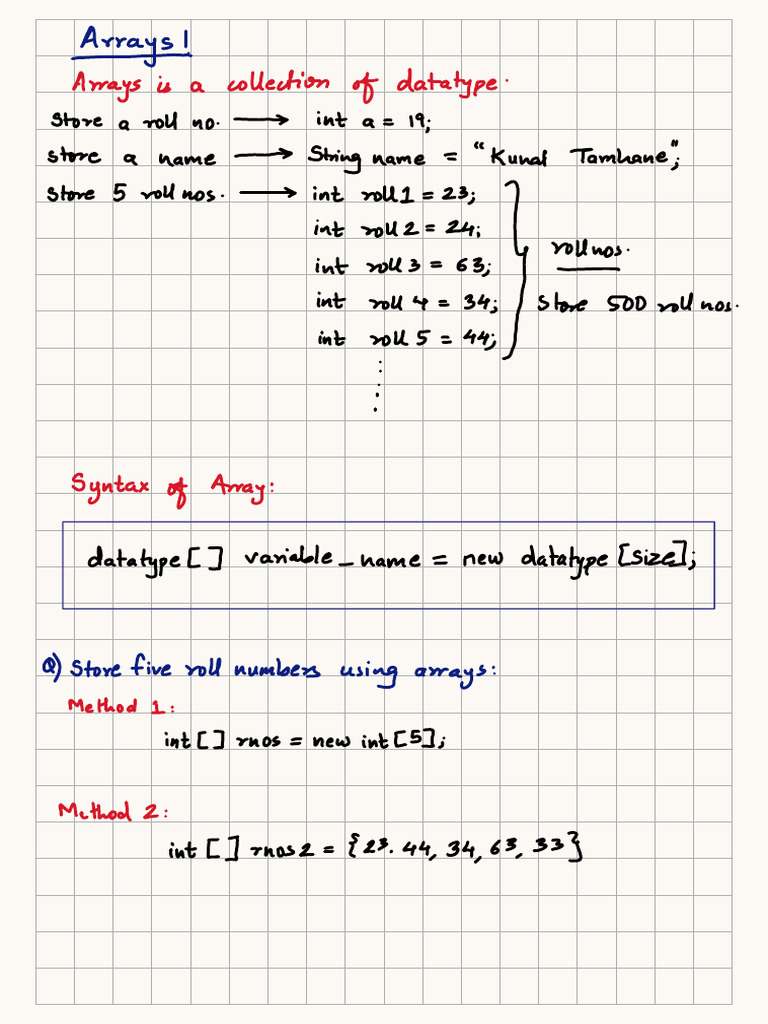 Arrays 1
Arrays is a collection of datatype.
Store a roll no. → int a = 19;
store a name → String name = "Kunal Tamhane";
store 5 roll nos. → int roll1 = 23;
int roll2 = 24;
int roll3 = 63;
int roll4 = 34;
int roll5 = 44;
roll nos.
Store 500 roll nos.
Syntax of Array:
datatype[] variable_name = new datatype[size];
Q) Store five roll numbers using arrays:
Method 1:
int[] rnos = new int[5];
Method 2:
int[] rnos2 = {23. 44, 34, 63, 33}